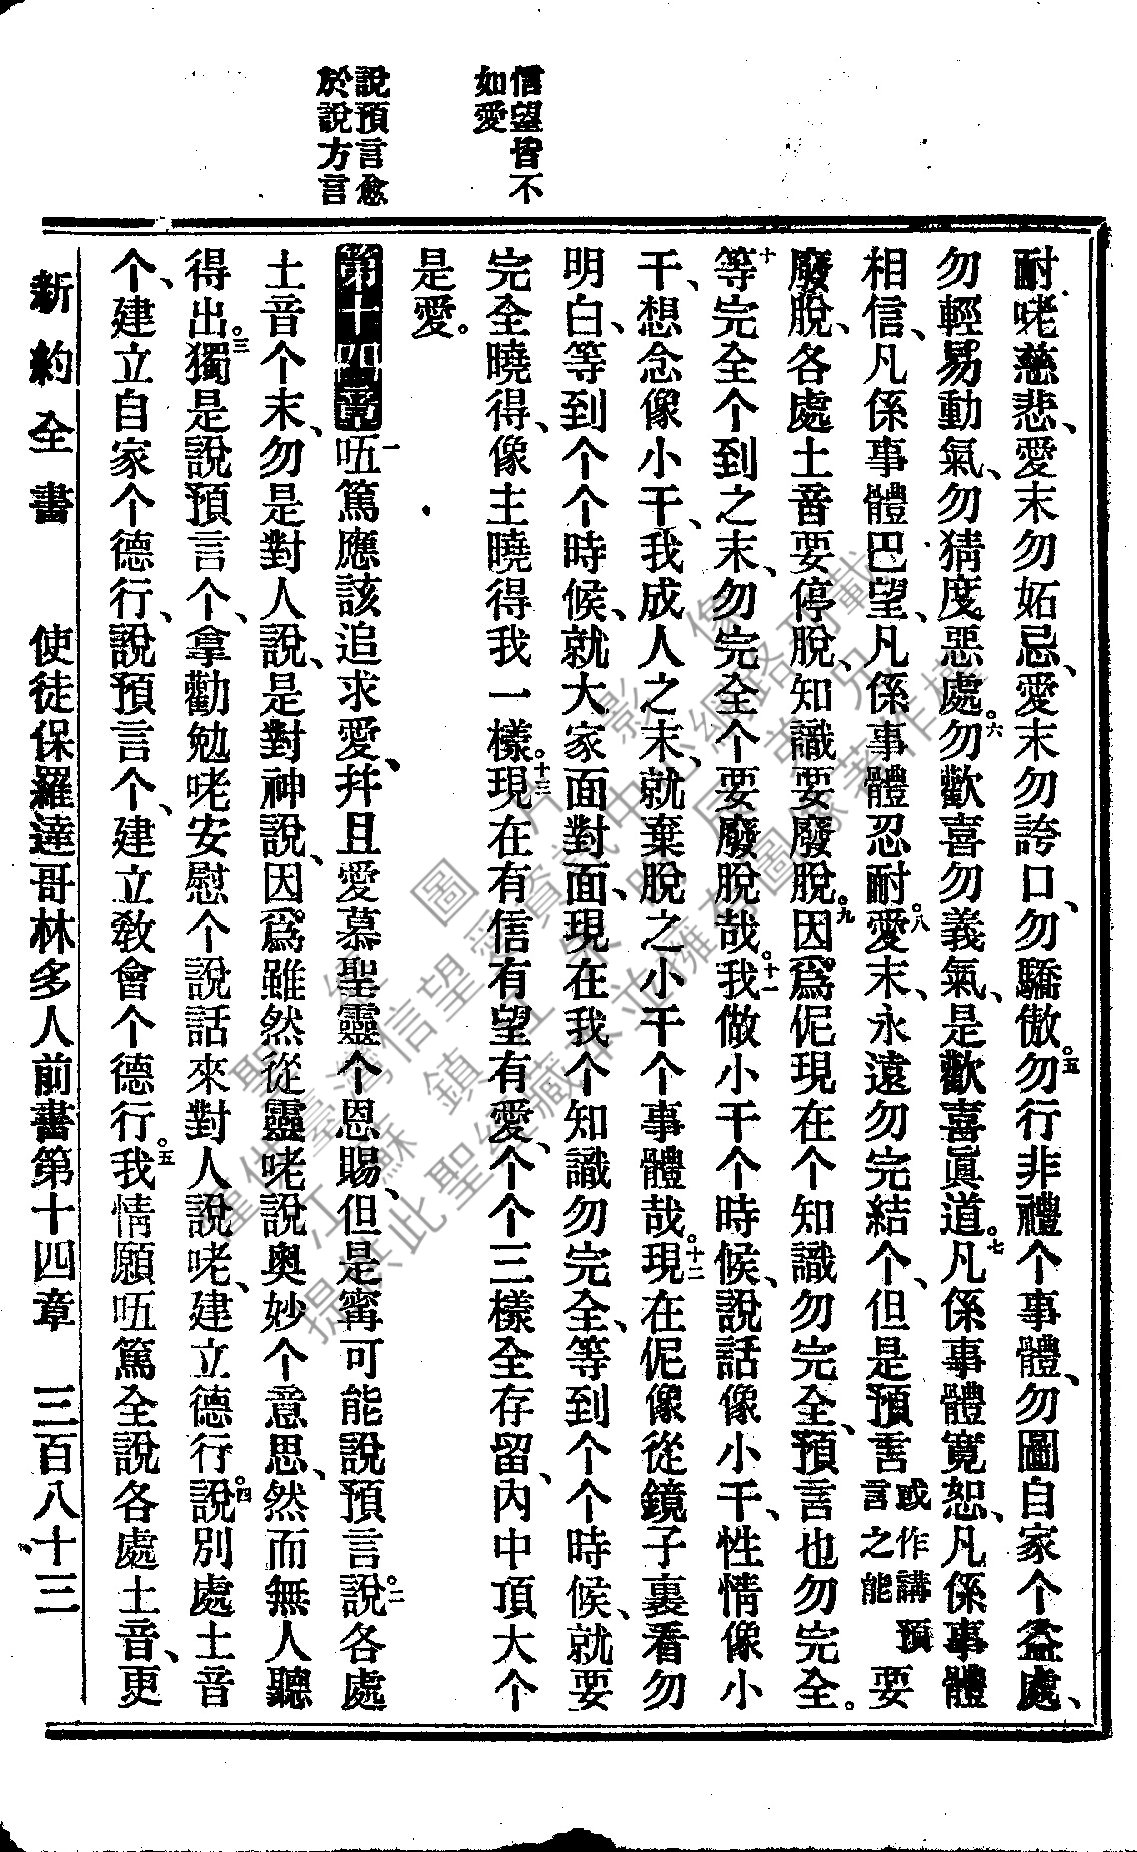 信望皆不
如愛
說預言愈
於說方言
耐咾慈悲、愛末勿妬忌、愛末勿誇口、勿驕傲。五勿行非禮个事體、勿圖自家个益處、
勿輕易動氣、勿猜度惡處。六勿歡喜勿義氣、是歡喜眞道。七凡係事體寬恕、凡係事體
相信、凡係事體巴望、凡係事體忍耐。八愛末、永遠勿完結个、但是預言或作講預言之能要
廢脫、各處土音要停脫、知識要廢脫。九因爲伲現在个知識勿完全、預言也勿完全。
十等完全个到之末、勿完全个要廢脫哉。十一我做小干个時候、說話像小干、性情像小
干、想念像小干、我成人之末、就棄脫之小干个事體哉。十二現在伲像從鏡子裏看勿
明白、等到个个時候、就大家面對面、現在我个知識勿完全、等到个个時候、就要
完全曉得、像主曉得我一樣。十三現在有信有望有愛、个个三樣全存留、內中頂大个
是愛。
第十四章一㕶篤應該追求愛、幷且愛慕聖靈个恩賜、但是寗可能說預言。二說各處
土音个末、勿是對人說、是對神說、因爲雖然從靈咾說奧妙个意思、然而無人聽
得出。三獨是說預言个、拿勸勉咾安慰个說話來對人說咾、建立德行。四說別處土音
个、建立自家个德行、說預言个、建立敎會个德行。五我情願㕶篤全說各處土音、更
新約全書　使徒保羅達哥林多人前書第十四章　三百八十三
聖經圖片影像
僅供臺灣信望愛資訊中心網路刊載
江蘇鎮江
提供此聖經藏本並擁有圖像著作權